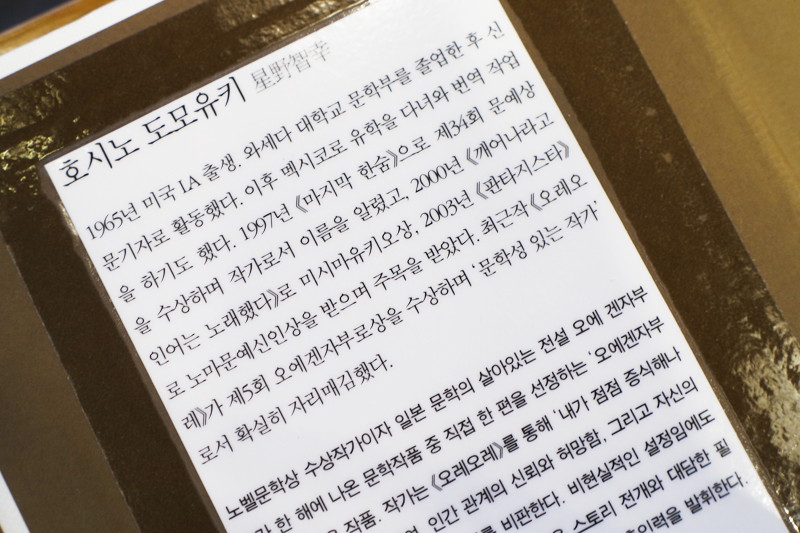 호시노 도모유키 星野智幸
1965년 미국 LA 출생. 와세다 대학교 문학부를 졸업한 후 신
문기자로 활동했다. 이후 멕시코로 유학을 다녀와 번역 작업
을 하기도 했다. 1997년 《마지막 한숨》으로 제34회 문예상
을 수상하며 작가로서 이름을 알렸고, 2000년 《깨어나라고
인어는 노래했다》로 미시마유키오상, 2003년 《판타지스타》
로 노마문예신인상을 받으며 주목을 받았다. 최근작 《오레오
레》가 제5회 오에겐자부로상을 수상하며 ‘문학성 있는 작가’
로서 확실히 자리매김했다.
노벨문학상 수상작가이자 일본 문학의 살아있는 전설 오에 겐자부
한 해에 나온 문학작품 중 직접 한 편을 선정하는 ‘오에겐자부
작품. 작가는 《오레오레》를 통해 ‘내가 점점 증식해나
인간 관계의 신뢰와 허망함, 그리고 자신의
를 비판한다. 비현실적인 설정임에도
스토리 전개와 대담한 필
을 발휘한다.